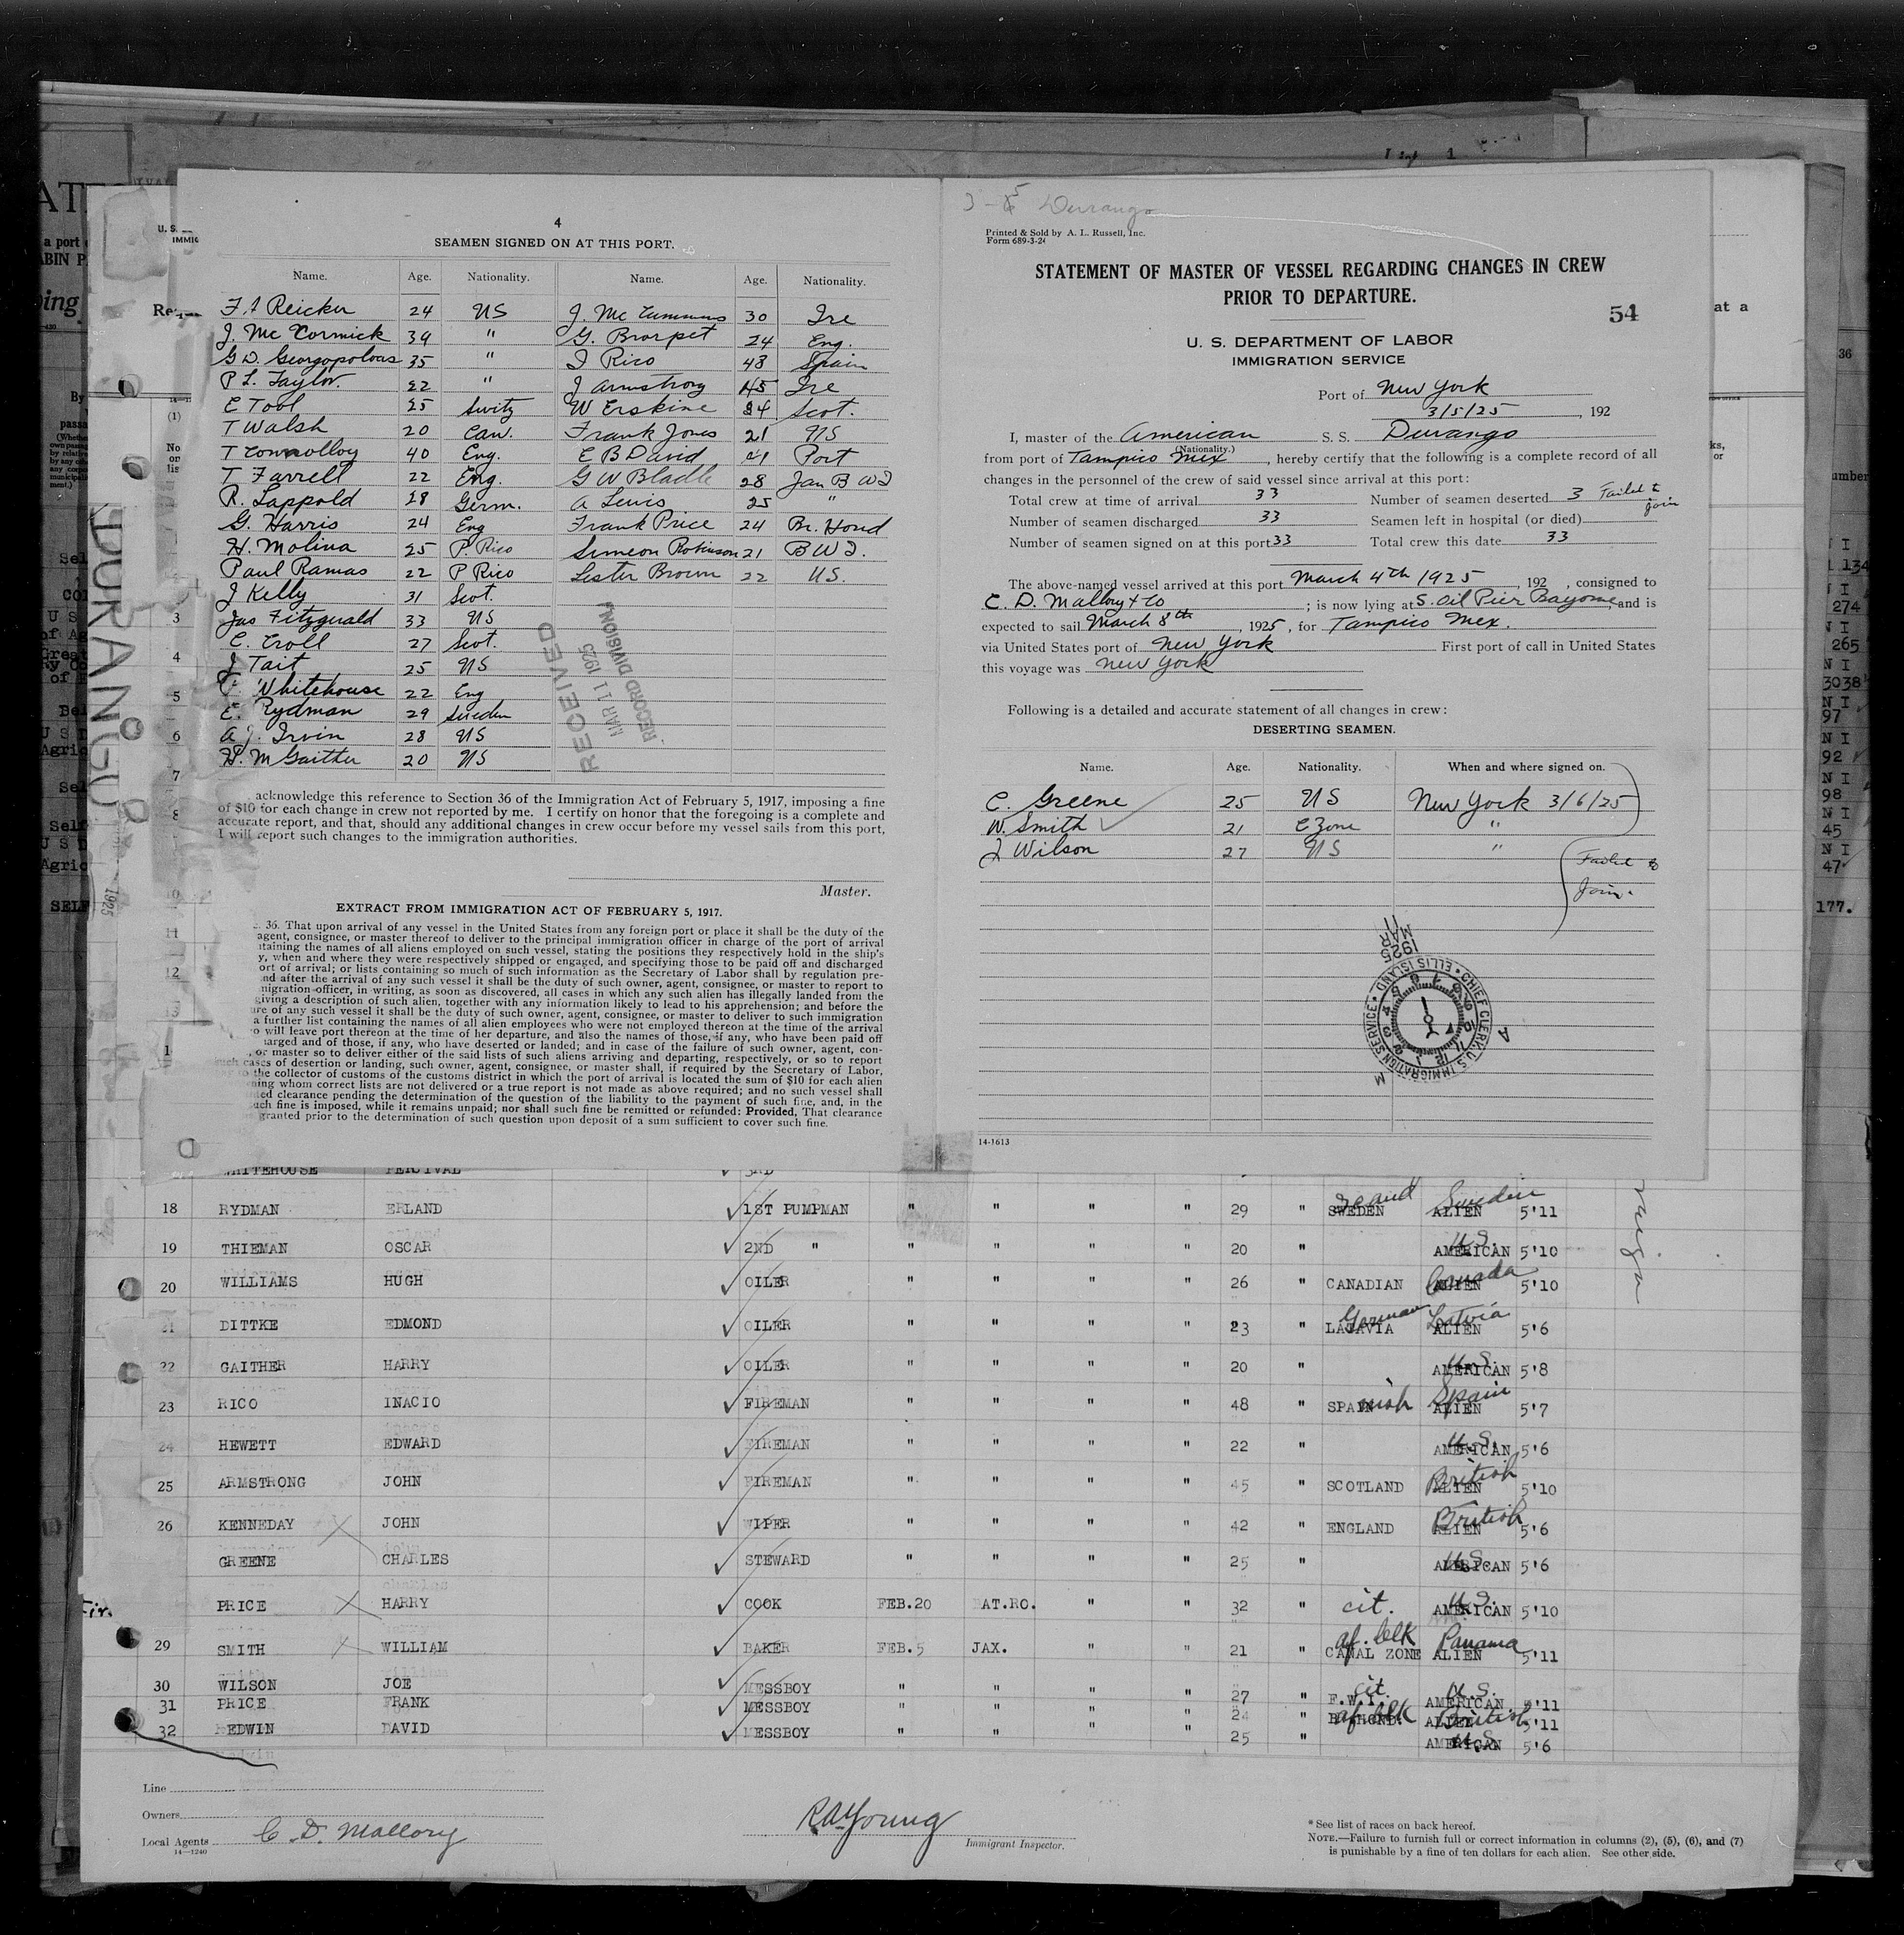 4
SEAMEN SIGNED ON AT THIS PORT.
Name. Age. Nationality. Name. Age. Nationality.
F. Reicker 24 US J. McCummins 30 Ire
J. McCormick 39 " G. Brorpet 24 Eng.
G D. Georgopoloas 35 " I Rico 48 Spain
P L. Taylor. 22 " J Armstrong 45 Ire
E Tobl 25 Switz W Erskine 24 Scot.
T Walsh 20 Can. Frank Jones 21 US
T Connolloy 40 Eng. E B David 21 Port
T Farrell 22 Eng. G W Bladle 28 Jan B W I
R. Lappold 28 Germ. A Lewis 25 "
G. Harris 24 Eng Frank Price 24 Br. Hond
H. Molina 25 P. Rico Simeon Robinson 21 B W I.
Paul Ramas 22 P Rico Lester Brown 22 US.
J Kelly 31 Scot.
Jas Fitzgerald 33 US
C. Croll 27 Scot.
J Tait 25 US
P. Whitehouse 22 Eng
E. Rydman 29 Sweden
A J. Irvin 28 US
H. M Gaither 20 US
RECEIVED
MAR 11 1925
RECORD DIVISION
acknowledge this reference to Section 36 of the Immigration Act of February 5, 1917, imposing a fine
of $10 for each change in crew not reported by me. I certify on honor that the foregoing is a complete and
accurate report, and that, should any additional changes in crew occur before my vessel sails from this port,
I will report such changes to the immigration authorities.
Master.
EXTRACT FROM IMMIGRATION ACT OF FEBRUARY 5, 1917.
36. That upon arrival of any vessel in the United States from any foreign port or place it shall be the duty of the
agent, consignee, or master thereof to deliver to the principal immigration officer in charge of the port of arrival
taining the names of all aliens employed on such vessel, stating the positions they respectively hold in the ship's
y, when and where they were respectively shipped or engaged, and specifying those to be paid off and discharged
ort of arrival; or lists containing so much of such information as the Secretary of Labor shall by regulation pre-
nd after the arrival of any such vessel it shall be the duty of such owner, agent, consignee, or master to report to
migration officer, in writing, as soon as discovered, all cases in which any such alien has illegally landed from the
giving a description of such alien, together with any information likely to lead to his apprehension; and before the
ure of any such vessel it shall be the duty of such owner, agent, consignee, or master to deliver to such immigration
a further list containing the names of all alien employees who were not employed thereon at the time of the arrival
o will leave port thereon at the time of her departure, and also the names of those, if any, who have been paid off
harged and of those, if any, who have deserted or landed; and in case of the failure of such owner, agent, con-
, or master so to deliver either of the said lists of such aliens arriving and departing, respectively, or so to report
such cases of desertion or landing, such owner, agent, consignee, or master shall, if required by the Secretary of Labor,
to the collector of customs of the customs district in which the port of arrival is located the sum of $10 for each alien
ning whom correct lists are not delivered or a true report is not made as above required; and no such vessel shall
ted clearance pending the determination of the question of the liability to the payment of such fine, and, in the
uch fine is imposed, while it remains unpaid; nor shall such fine be remitted or refunded: Provided, That clearance
granted prior to the determination of such question upon deposit of a sum sufficient to cover such fine.
3-5 Durango
Printed & Sold by A. L. Russell, Inc.
Form 689-3-24
STATEMENT OF MASTER OF VESSEL REGARDING CHANGES IN CREW
PRIOR TO DEPARTURE.
54
U. S. DEPARTMENT OF LABOR
IMMIGRATION SERVICE
Port of New York
3/5/25, 192
I, master of the American S. S. Durango
(Nationality.)
from port of Tampico Mex, hereby certify that the following is a complete record of all
changes in the personnel of the crew of said vessel since arrival at this port:
Total crew at time of arrival 33 Number of seamen deserted 3 Failed to join
Number of seamen discharged 33 Seamen left in hospital (or died)
Number of seamen signed on at this port 33 Total crew this date 33
The above-named vessel arrived at this port March 4th 1925, 192 , consigned to
C. D. Mallory & Co ; is now lying at S. Oil Pier Bayonne, and is
expected to sail March 8th, 1925, for Tampico Mex.
via United States port of New York First port of call in United States
this voyage was New York
Following is a detailed and accurate statement of all changes in crew:
DESERTING SEAMEN.
Name. Age. Nationality. When and where signed on.
C. Greene 25 US New York 3/6/25
W. Smith 21 C Zone "
J Wilson 27 US "
Failed to
Join.
MAR 1925
CHIEF CLERK, U.S. IMMIGRATION SERVICE • ELLIS ISLAND
14-1613
DURANGO
WHITEHOUSE PERCIVAL 3RD
18 RYDMAN ERLAND 1ST PUMPMAN " " " " 29 " SWEDEN Scand ALIEN Sweden 5'11
19 THIEMAN OSCAR 2ND " " " " " 20 " AMERICAN U.S. 5'10
20 WILLIAMS HUGH OILER " " " " 26 " CANADIAN ALIEN Canada 5'10
21 DITTKE EDMOND OILER " " " " 23 " LATAVIA German ALIEN Latvia 5'6
22 GAITHER HARRY OILER " " " " 20 " AMERICAN U.S. 5'8
23 RICO INACIO FIREMAN " " " " 48 " SPANish ALIEN Spain 5'7
24 HEWETT EDWARD FIREMAN " " " " 22 " AMERICAN U.S. 5'6
25 ARMSTRONG JOHN FIREMAN " " " " 45 " SCOTLAND ALIEN British 5'10
26 KENNEDAY JOHN WIPER " " " " 42 " ENGLAND ALIEN British 5'6
GREENE CHARLES STEWARD " " " " 25 " AMERICAN U.S. 5'6
PRICE HARRY COOK FEB.20 BAT.RO. " " 32 " cit. AMERICAN U.S. 5'10
29 SMITH WILLIAM BAKER FEB.5 JAX. " " 21 " CANAL ZONE af. blk ALIEN Panama 5'11
30 WILSON JOE MESSBOY " " " " 27 " F.W.I. cit AMERICAN U.S. 5'11
31 PRICE FRANK MESSBOY " " " " 24 " B.HOND. af. blk ALIEN British 5'11
32 EDWIN DAVID MESSBOY " " " " 25 " AMERICAN U.S. 5'6
Line
Owners
Local Agents C. D. Mallory
14-1240
R A Young
Immigrant Inspector.
* See list of races on back hereof.
NOTE.—Failure to furnish full or correct information in columns (2), (5), (6), and (7)
is punishable by a fine of ten dollars for each alien. See other side.